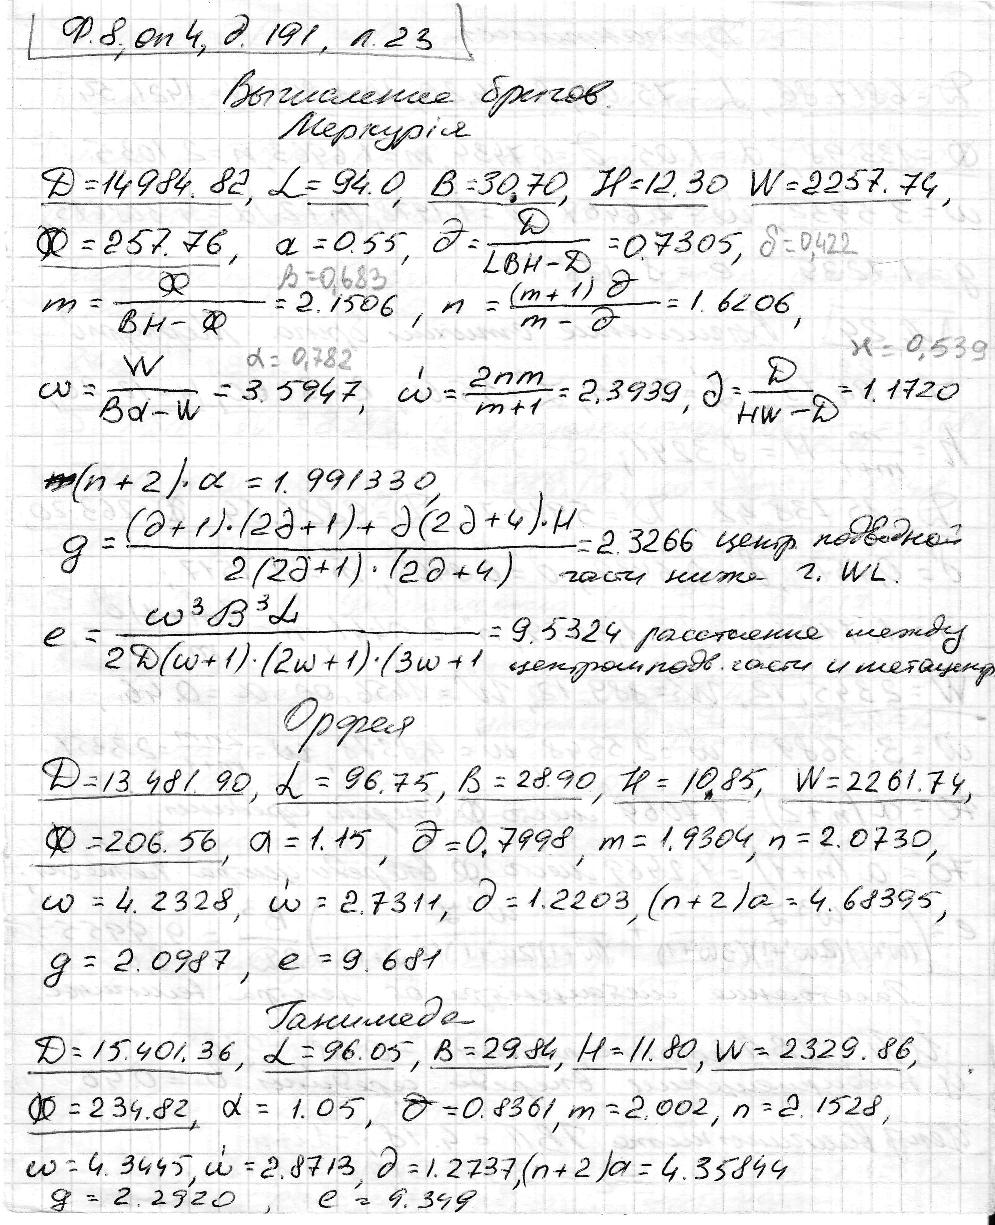 Ф.8, оп 4, д. 191, л. 23
Вычисление бригов.
Меркурія
D=14984.82, L=94.0, B=30,70, H=12.30 W=2257.74,
Ф=257.76, a=0.55, ∂=D/(LBH-D)=0.7305, δ=0,422
β=0,683
m=Ф/(BH-Ф)=2.1506, n=(m+1)∂/(m-∂)=1.6206,
ϰ=0,539
α=0,782
ω=W/(Bα-W)=3.5947, ώ=2nm/(m+1)=2,3939, ∂=D/(HW-D)=1.1720
(n+2)·α=1.991330,
g=((∂+1)·(2∂+1)+∂(2∂+4)·H)/(2(2∂+1)·(2∂+4))=2.3266 центр подводной
части ниже г. WL.
e=ω³B³L/(2D(ω+1)·(2ω+1)·(3ω+1)=9.5324 расстояние между
центром подв. части и метацентр
Орфея
D=13481.90, L=96.75, B=28.90, H=10,85, W=2261.74,
Ф=206.56, a=1.15, ∂=0,7998, m=1.9304, n=2.0730,
ω=4.2328, ώ=2.7311, ∂=1.2203, (n+2)a=4.68395,
g=2.0987, e=9.681
Ганимеда
D=15.401.36, L=96.05, B=29.84, H=11.80, W=2329.86,
Ф=234.82, α=1.05, ∂=0.8361, m=2.002, n=2.1528,
ω=4.3445, ώ=2.8713, ∂=1.2737, (n+2)a=4.35844
g=2.2920, e=9.349